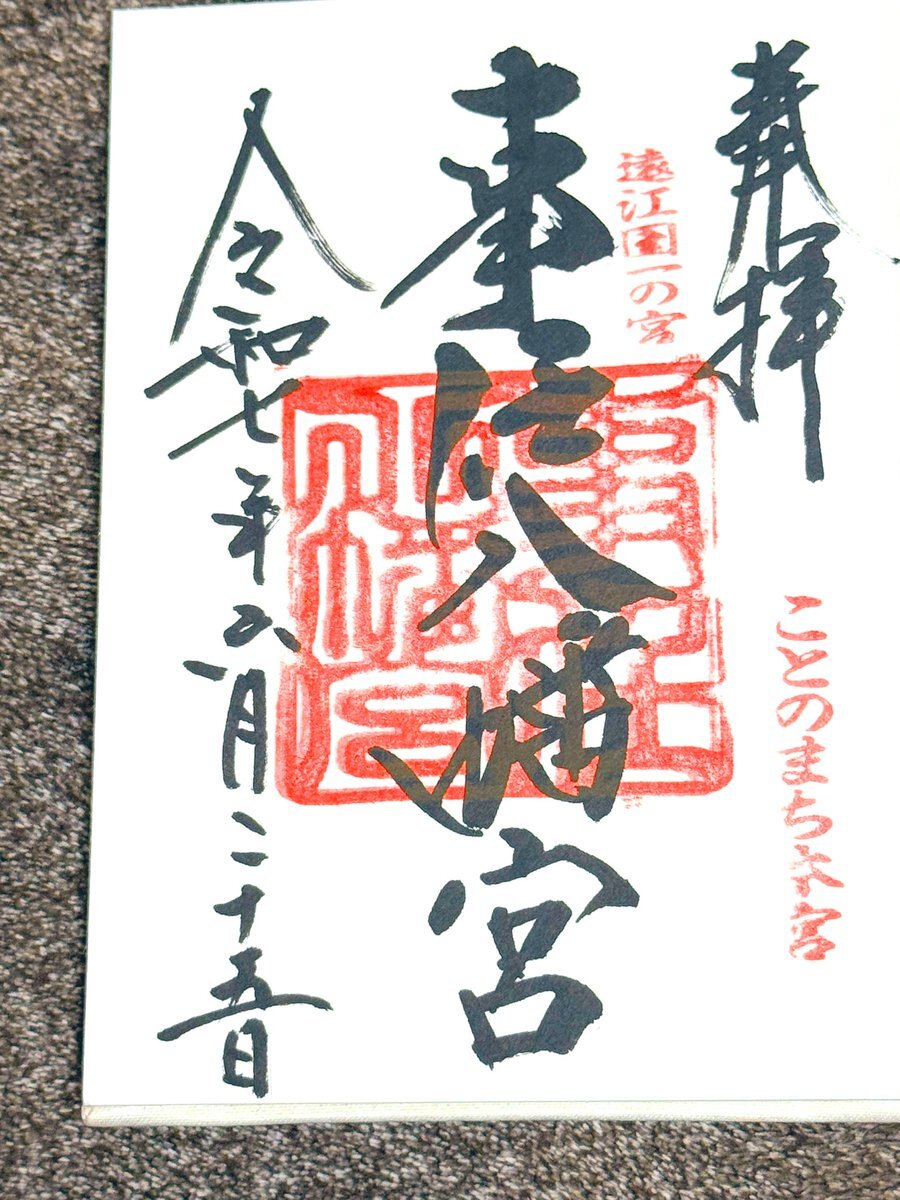 奉拝
ことのまち宮
遠江国一の宮
事任八幡宮
令和七年六月二十五日